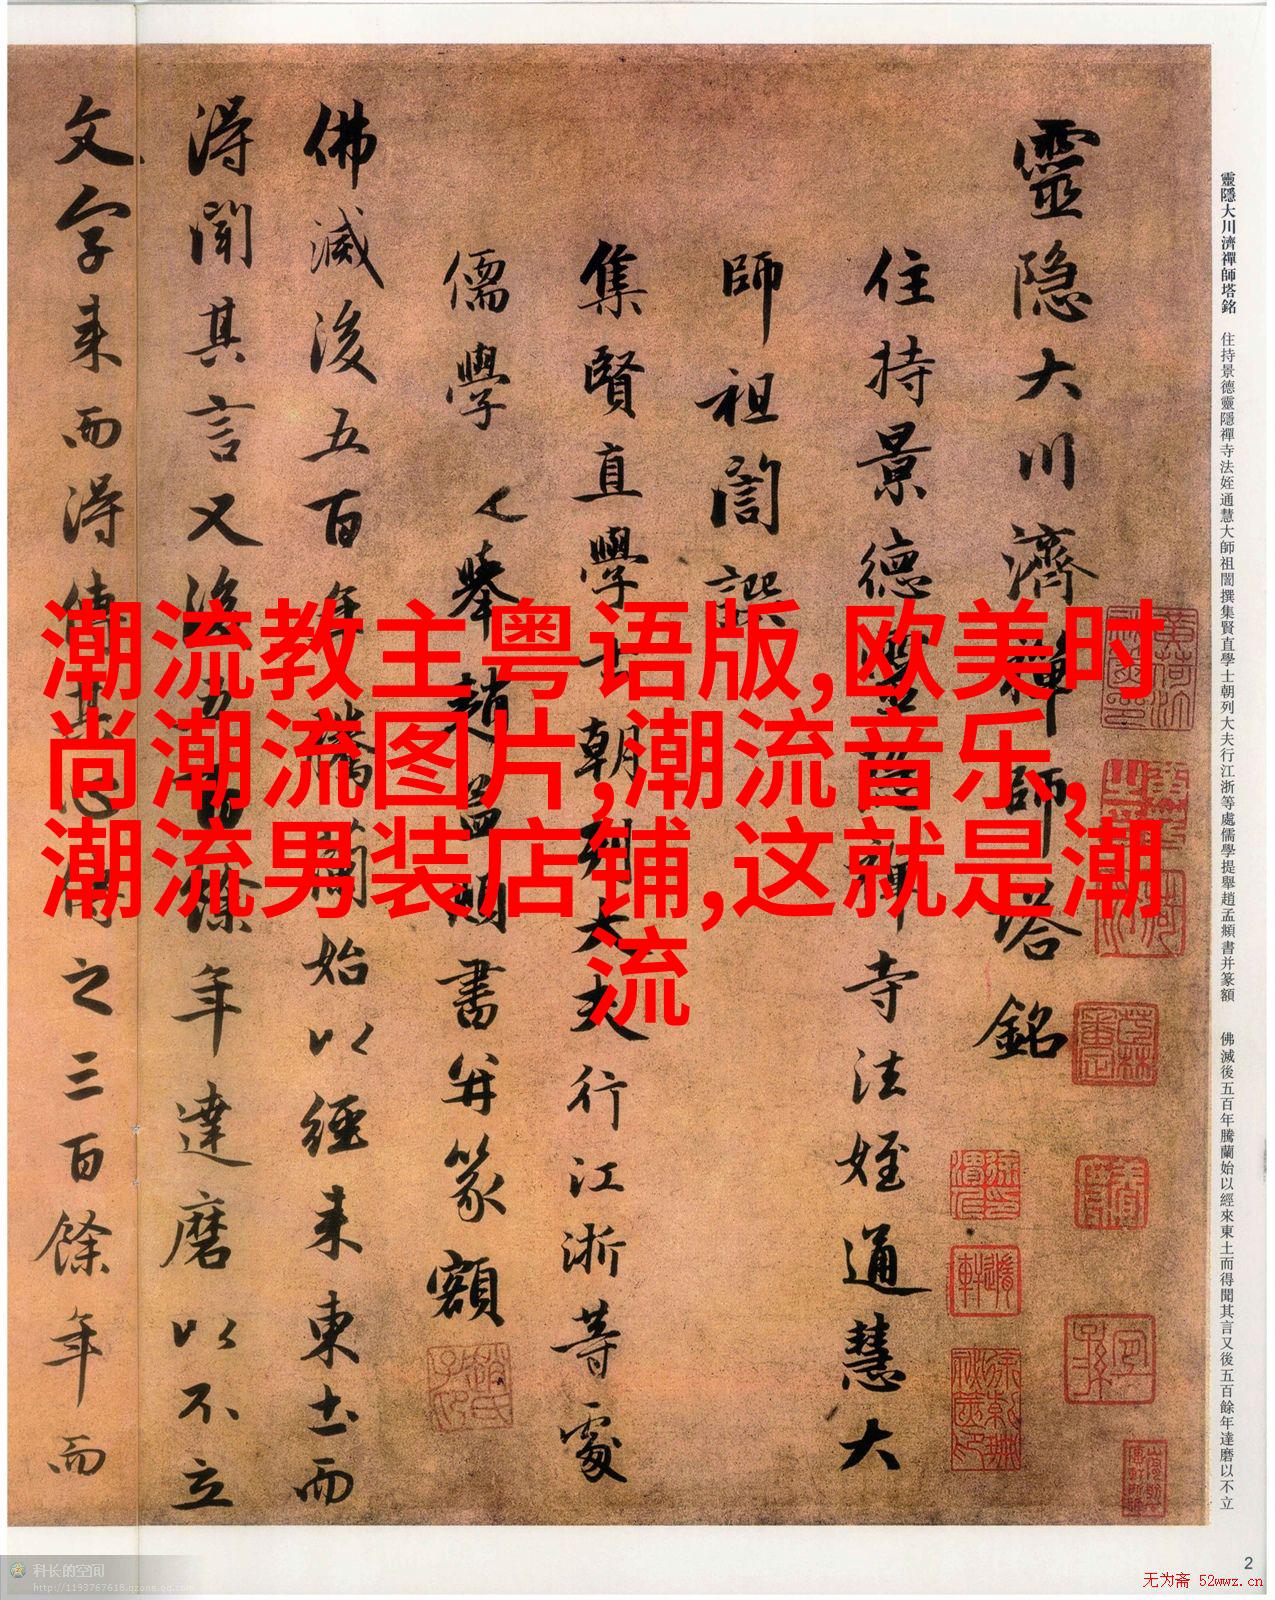 靈隱大川濟禪師塔銘 住持景德靈隱禪寺法姪通慧大師祖誾撰集賢直學士朝列大夫行江浙等處儒學提舉趙孟頫書并篆額 佛滅後五百年騰蘭始以經來東土而得聞其言又後五百餘年達磨以不立
靈隐大川濟禪師塔銘
住持景德靈隐禪寺法姪通慧大
師祖誾譔
集賢直學士朝列大夫行江浙等處
儒學提舉趙孟頫書并篆額
佛滅後五百年騰蘭始以經来東土而
得聞其言又後五百餘年達磨以不立
文字来而得傳其心傳之三百餘年而
潮流教主粤语版,欧美时
尚潮流图片,潮流音乐,
潮流男装店铺,这就是潮
流
科长的空间
http://1193767618.qzone.qq.com
2
无为斋 52wwz.cn